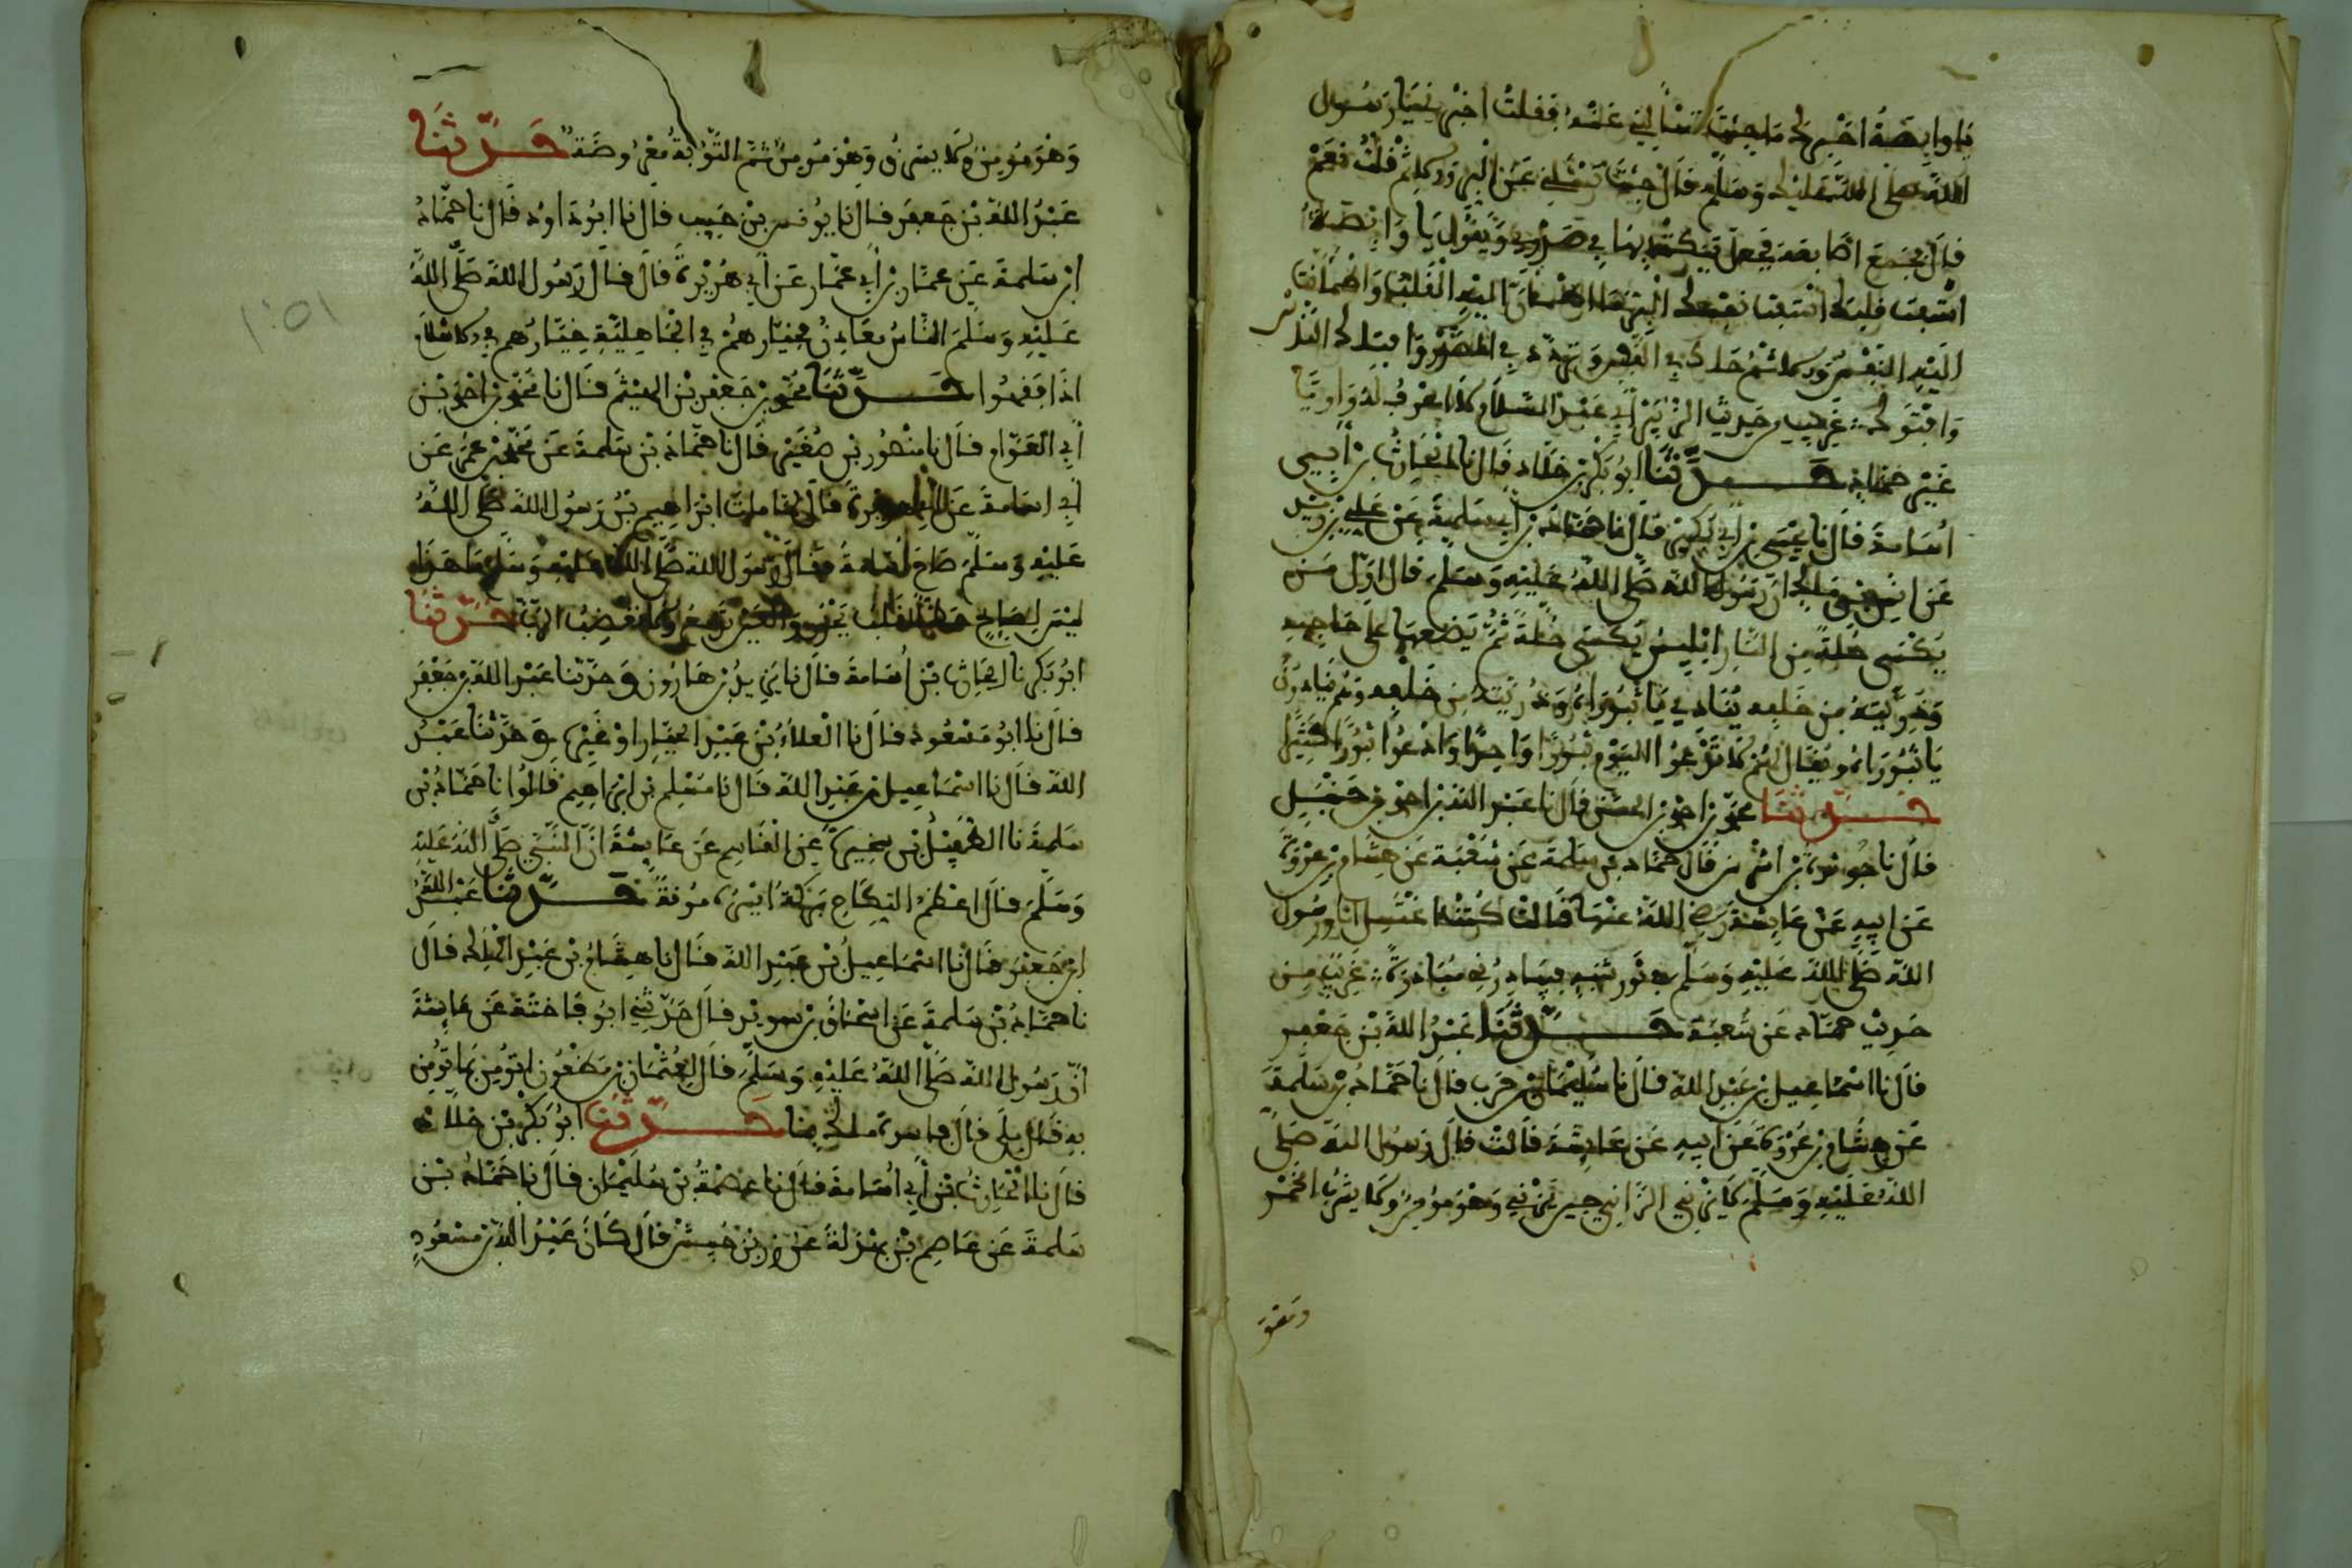 يا وابصة اخبرك ما جئت تسالني عنه فقلت اخبرني يا رسول
الله صلى الله عليه وسلم قال جئت تسئلني عن البر والاثم قلت نعم
قال فجمع اصابعه فجعل ينكت بها في صدري ويقول يا وابصة
استفت قلبك استفت نفسك البر ما اطمأن اليه القلب واطمأنت
اليه النفس والاثم ما حاك في القلب وتردد في الصدر وان افتاك الناس
وافتوك غريب من حديث الزبير ابي عبد السلام لا اعرف له راويا
غير حماد حدثنا ابو بكر بن خلاد قال نا الحارث بن ابي
اسامة قال نا يحيى بن ابي بكير قال نا حماد بن سلمة عن علي بن زيد
عن انس بن ملك ان رسول الله صلى الله عليه وسلم قال اول من
يكسى حلة من النار ابليس يكسى حلة ثم يضعها على حاجبيه
وذريته من خلفه ينادي يا ثبوراه وذريته من خلفه وهم ينادون
يا ثبوراه ويقال لهم لا تدعوا اليوم ثبورا واحدا وادعوا ثبورا كثيرا
حدثنا محمد بن احمد بن الحسن قال نا عبد الله بن احمد بن حنبل
قال نا حوثرة بن اشرس قال حماد بن سلمة عن شعبة عن هشام بن عروة
عن ابيه عن عايشة رضي الله عنها قالت كنت اغتسل انا ورسول
الله صلى الله عليه وسلم من تور شبه فيبادرني مبادرة غريب من
حديث حماد عن شعبة حدثنا عبد الله بن جعفر
قال نا اسماعيل بن عبد الله قال نا سليمان بن حرب قال نا حماد بن سلمة
عن هشام بن عروة عن ابيه عن عايشة قالت قال رسول الله صلى
الله عليه وسلم لا يزني الزاني حين يزني وهو مؤمن ولا يشرب الخمر
وهو مومن ولا يسرق وهو مومن ثم التوبة معروضة حدثنا
عبد الله بن جعفر قال نا يونس بن حبيب قال نا ابو داود قال نا حماد
بن سلمة عن عمار بن ابي عمار عن ابي هريرة قال قال رسول الله صلى الله
عليه وسلم الناس معادن فخيارهم في الجاهلية خيارهم في الاسلام
اذا فقهوا حدثنا محمد بن جعفر بن الهيثم قال نا محمد بن احمد بن
ابي العوام قال نا منصور بن صغير قال نا حماد بن سلمة عن محمد بن عمر عن
ابي اسامة عن ابي هريرة قال لما مات ابراهيم بن رسول الله صلى الله
عليه وسلم صاح اسامة فقال رسول الله صلى الله عليه وسلم ما هذا
ليس لصايح حظ القلب يحزن والعين تدمع ولا نغضب الرب حدثنا
ابو بكر نا الحارث بن اسامة قال نا يزيد بن هارون وحدثنا عبد الله بن جعفر
قال نا ابو مسعود قال نا العلاء بن عبد الجبار او غيره وحدثنا عبد
الله قال نا اسماعيل بن عبد الله قال نا مسلم بن ابراهيم قالوا نا حماد بن
سلمة نا الطفيل بن سخبرة عن القاسم عن عايشة ان النبي صلى الله عليه
وسلم قال اعظم النكاح بركة ايسره مونة حدثنا عبد الله
بن جعفر قال نا اسماعيل بن عبد الله قال نا هشام بن عبد الملك قال
نا حماد بن سلمة عن اسحاق بن سويد قال حدثني ابو فاختة عن عايشة
ان رسول الله صلى الله عليه وسلم قال لعثمان بن مظعون اتؤمن بما نومن
به قال بلى قال فاسوة ملك بنا حدثنا ابو بكر بن خلاد
قال نا الحارث بن ابي اسامة قال نا عصمة بن سليمان قال نا حماد بن
سلمة عن عاصم بن بهدلة عن زر بن حبيش قال كان عبد الله بن مسعود